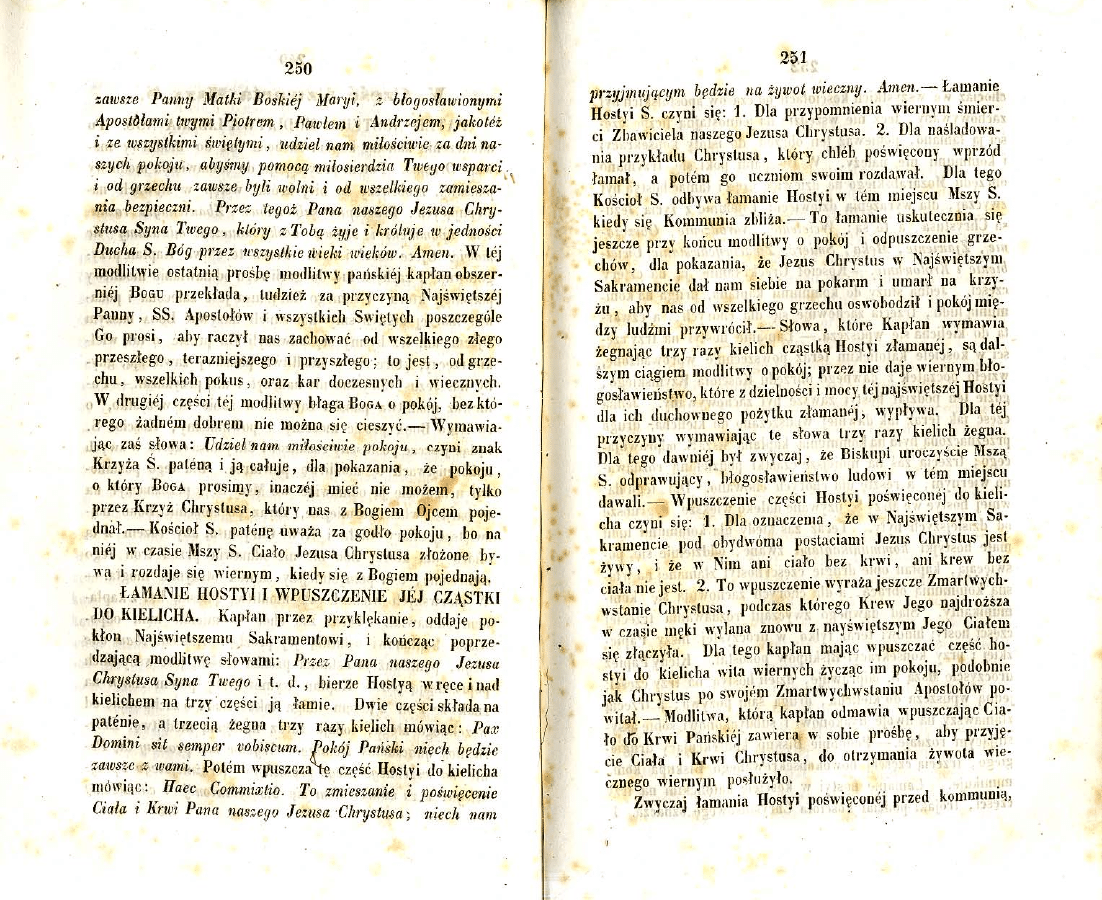 250
zawsze Panny Matki Boskiéj Maryi, z błogosławionymi
Apostołami twymi Piotrem, Pawłem i Andrzejem, jakotéż
i ze wszystkimi świętymi, udziel nam miłościwie za dni na-
szych pokoju, abyśmy pomocą miłosierdzia Twego wsparci
i od grzechu zawsze byli wolni i od wszelkiego zamiesza-
nia bezpieczni. Przez tegoż Pana naszego Jezusa Chry-
stusa Syna Twego, który z Tobą żyje i króluje w jedności
Ducha S. Bóg przez wszystkie wieki wieków. Amen. W téj
modlitwie ostatnią prośbę modlitwy pańskiéj kapłan obszer-
niéj Bogu przekłada, tudzież za przyczyną Najświętszéj
Panny, SS. Apostołów i wszystkich Swiętych poszczególe
Go prosi, aby raczył nas zachować od wszelkiego złego
przeszłego, terazniejszego i przyszłego; to jest, od grze-
chu, wszelkich pokus, oraz kar doczesnych i wiecznych.
W drugiéj części téj modlitwy błaga Boga o pokój, bez któ-
rego żadném dobrem nie można się cieszyć.— Wymawia-
jąc zaś słowa: Udziel nam miłościwie pokoju, czyni znak
Krzyża S. paténą i ją całuje, dla pokazania, że pokoju,
o który Boga prosimy, inaczéj mieć nie możem, tylko
przez Krzyż Chrystusa, który nas z Bogiem Ojcem poje-
dnał.— Kościoł S. paténę uważa za godło pokoju, bo na
niéj w czasie Mszy S. Ciało Jezusa Chrystusa złożone by-
wa i rozdaje się wiernym, kiedy się z Bogiem pojednają.
ŁAMANIE HOSTYI I WPUSZCZENIE JÉJ CZĄSTKI
DO KIELICHA. Kapłan przez przyklękanie, oddaje po-
kłon Najświętszemu Sakramentowi, i kończąc poprze-
dzającą modlitwę słowami: Przez Pana naszego Jezusa
Chrystusa Syna Twego i t. d., bierze Hostyą w ręce i nad
kielichem na trzy części ją łamie. Dwie części składa na
paténie, a trzecią żegna trzy razy kielich mówiąc: Pax
Domini sit semper vobiscum. Pokój Pański niech będzie
zawsze z wami. Potém wpuszcza tę część Hostyi do kielicha
mówiąc: Haec Commixtio. To zmieszanie i poświęcenie
Ciała i Krwi Pana naszego Jezusa Chrystusa; niech nam
251
przyjmującym będzie na żywot wieczny. Amen.— Łamanie
Hostyi S. czyni się: 1. Dla przypomnienia wiernym śmier-
ci Zbawiciela naszego Jezusa Chrystusa. 2. Dla naśladowa-
nia przykładu Chrystusa, który chléb poświęcony wprzód
łamał, a potém go uczniom swoim rozdawał. Dla tego
Kościoł S. odbywa łamanie Hostyi w tém miejscu Mszy S.
kiedy się Kommunia zbliża.— To łamanie uskutecznia się
jeszcze przy końcu modlitwy o pokój i odpuszczenie grze-
chów, dla pokazania, że Jezus Chrystus w Najświętszym
Sakramencie dał nam siebie na pokarm i umarł na krzy-
żu, aby nas od wszelkiego grzechu oswobodził i pokój mię-
dzy ludźmi przywrócił.— Słowa, które Kapłan wymawia
żegnając trzy razy kielich cząstką Hostyi złamanéj, są dal-
szym ciągiem modlitwy o pokój; przez nie daje wiernym bło-
gosławieństwo, które z dzielności i mocy téj najświętszéj Hostyi
dla ich duchownego pożytku złamanéj, wypływa. Dla téj
przyczyny wymawiając te słowa trzy razy kielich żegna.
Dla tego dawniéj był zwyczaj, że Biskupi uroczyście Mszą
S. odprawujący, błogosławieństwo ludowi w tém miejscu
dawali.— Wpuszczenie części Hostyi poświęconéj do kieli-
cha czyni się: 1. Dla oznaczenia, że w Najświętszym Sa-
kramencie pod obydwóma postaciami Jezus Chrystus jest
żywy, i że w Nim ani ciało bez krwi, ani krew bez
ciała nie jest. 2. To wpuszczenie wyraża jeszcze Zmartwych-
wstanie Chrystusa, podczas którego Krew Jego najdroższa
w czasie męki wylana znowu z nayświętszym Jego Ciałem
się złączyła. Dla tego kapłan mając wpuszczać część ho-
styi do kielicha wita wiernych życząc im pokoju, podobnie
jak Chrystus po swojém Zmartwychwstaniu Apostołów po-
witał.— Modlitwa, którą kapłan odmawia wpuszczając Cia-
ło do Krwi Pańskiéj zawiera w sobie prośbę, aby przyję-
cie Ciała i Krwi Chrystusa, do otrzymania żywota wie-
cznego wiernym posłużyło.
Zwyczaj łamania Hostyi poświęconéj przed kommunią,